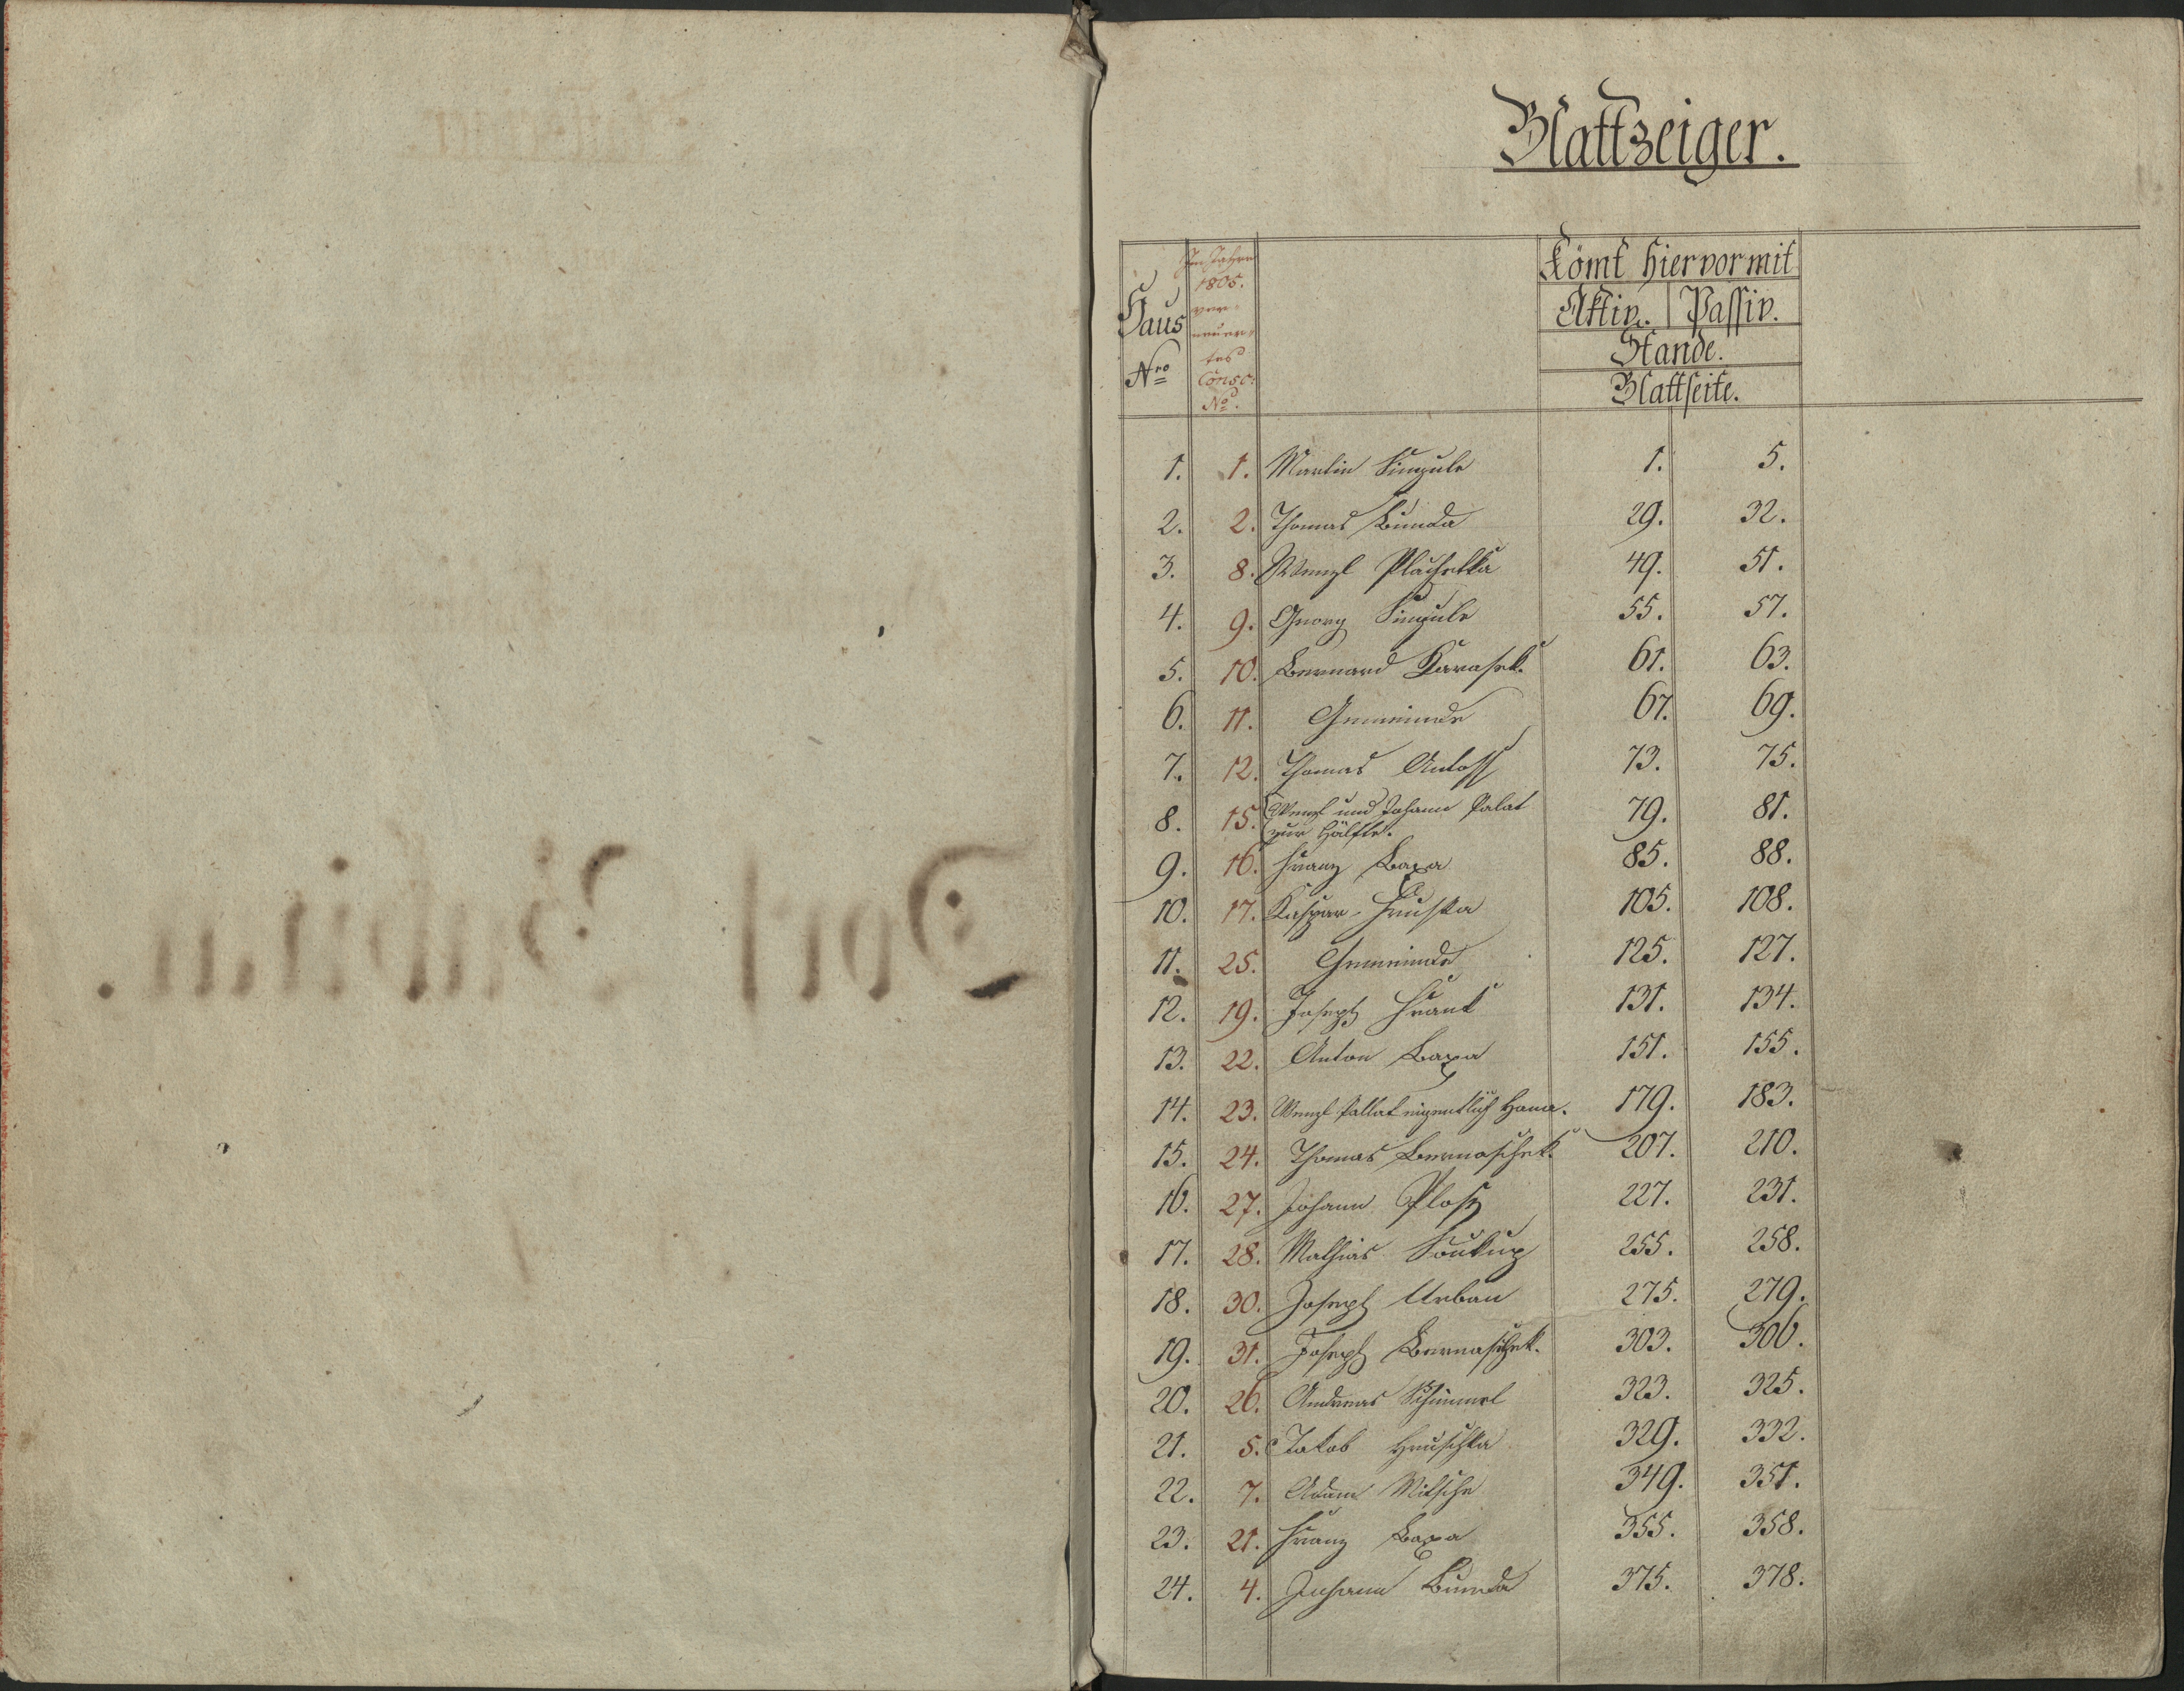 Blattzeiger.
Haus Nro
Im Jahre 1805. ver= neuer= tes Consc: No.
Kömt hier vor mit
Aktiv. Passiv.
Stande.
Blattseite.
1. 1. Martin Singule 1. 5.
2. 2. Thomas Bumda 29. 32.
3. 8. Wenzl Plachetka 49. 51.
4. 9. Georg Singule 55. 57.
5. 10. Bernard Karasek. 61. 63.
6. 11. Gemeinde 67. 69.
7. 12. Thomas 73. 75.
8. 15. Wenzl und Johann Palat 79. 81.
zur Hälfte.
9. 16. Franz Baxa 85. 88.
10. 17. Kaspar Hruska 105. 108.
11. 25. Gemeinde 125. 127.
12. 19. Joseph Frank 131. 134.
13. 22. Anton Baxa 151. 155.
14. 23. Wenzl Pallat eigentlich Hana. 179. 183.
15. 24. Thomas Bernaschek. 207. 210.
16. 27. Johann Ploß 227. 231.
17. 28. Mathias Soukup 255. 258.
18. 30. Joseph Urban 275. 279.
19. 31. Joseph Bernaschek. 303. 306.
20. 26. Andreas Schimmel 323. 325.
21. 5. Jakob Hruschka 329. 332.
22. 7. Adam Nitsche 349. 351.
23. 21. Franz Baxa 355. 358.
24. 4. Johann Bumda 375. 378.